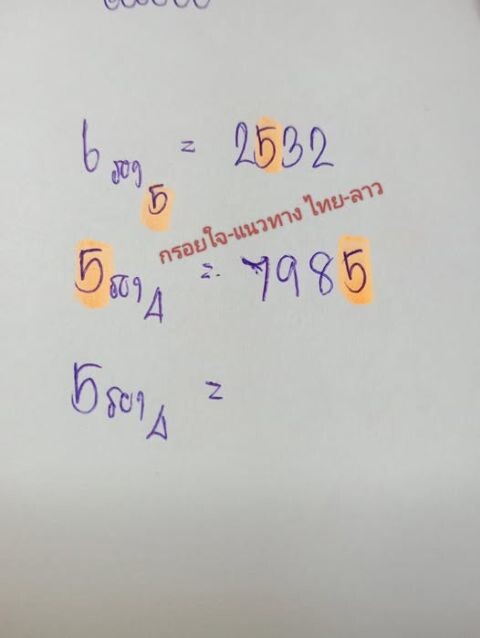 6 รอง 5 = 2532
กรอยใจ-แนวทาง ไทย-ลาว
5 รอง 4 = 7985
5 รอง 4 =